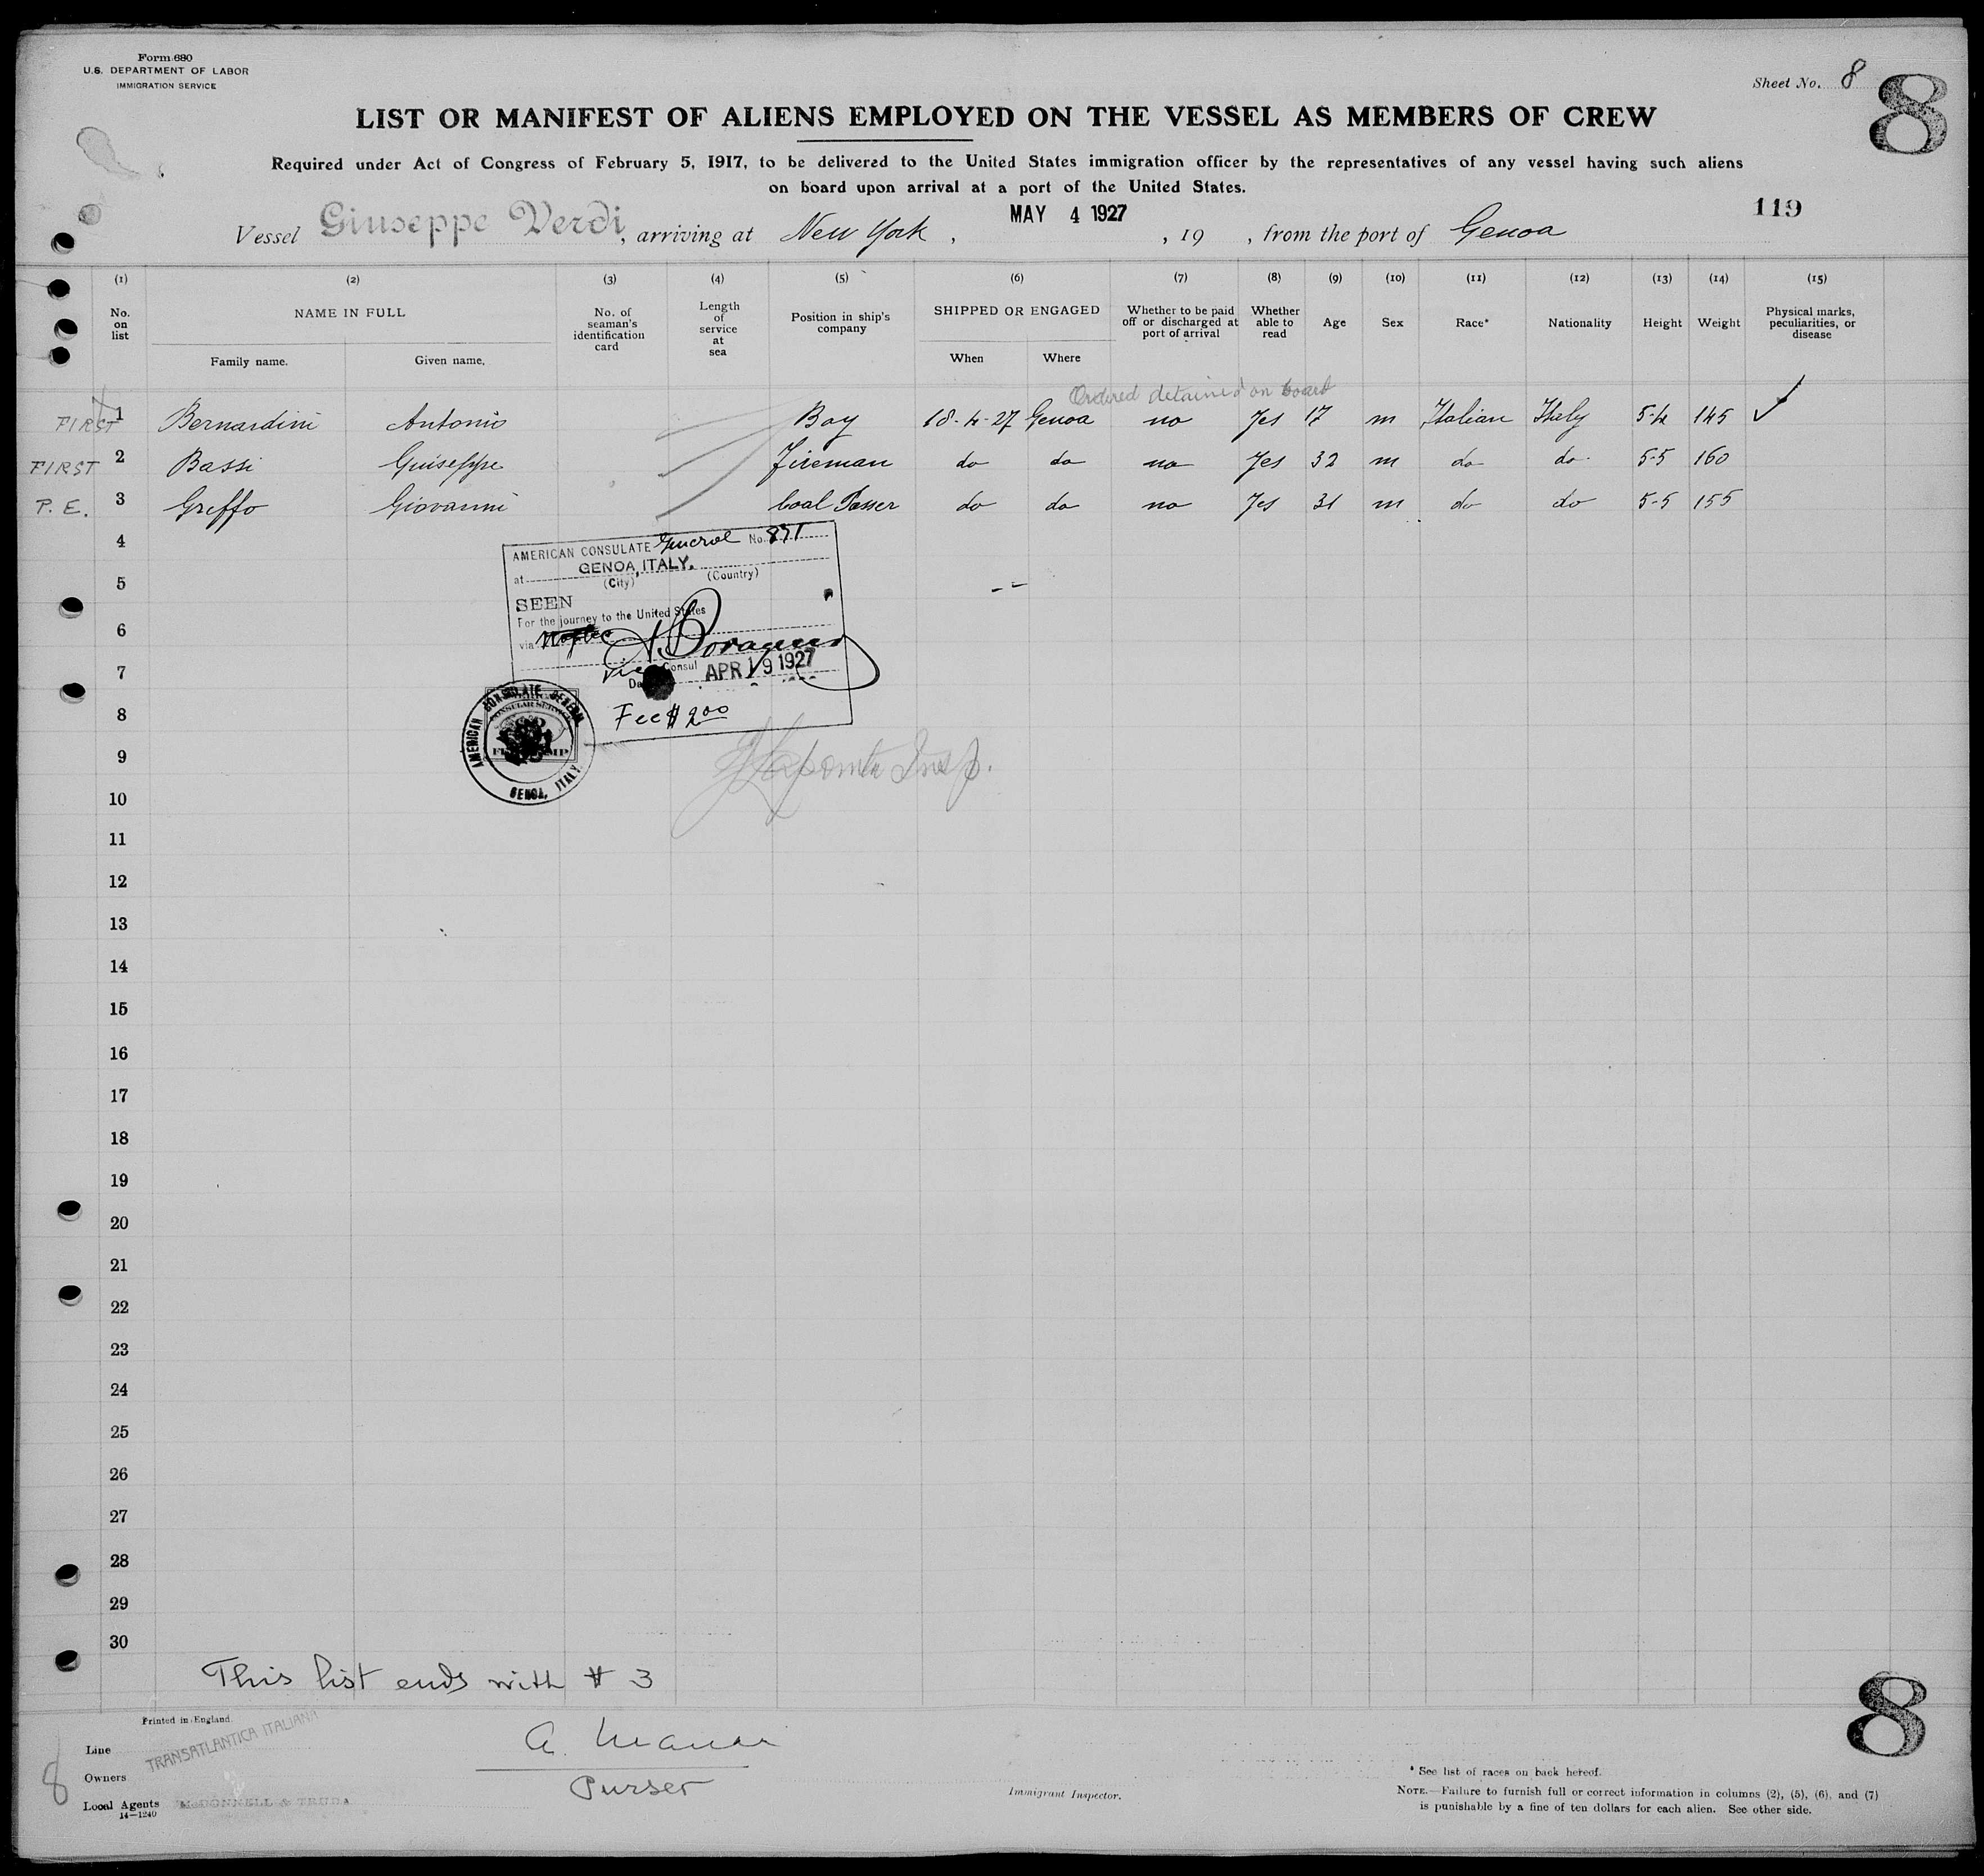 Form 680
U.S. DEPARTMENT OF LABOR
IMMIGRATION SERVICE
Sheet No. 8
8
LIST OR MANIFEST OF ALIENS EMPLOYED ON THE VESSEL AS MEMBERS OF CREW
Required under Act of Congress of February 5, 1917, to be delivered to the United States immigration officer by the representatives of any vessel having such aliens
on board upon arrival at a port of the United States.
119
MAY 4 1927
Vessel Giuseppe Verdi, arriving at New York, , 19 , from the port of Genoa
(1) (2) (3) (4) (5) (6) (7) (8) (9) (10) (11) (12) (13) (14) (15)
No. on list
NAME IN FULL
Family name.
Given name.
No. of seaman's identification card
Length of service at sea
Position in ship's company
SHIPPED OR ENGAGED
When
Where
Whether to be paid off or discharged at port of arrival
Whether able to read
Age
Sex
Race*
Nationality
Height
Weight
Physical marks, peculiarities, or disease
Ordered detained on board
FIRST 1 Bernardini Antonio Boy 18-4-27 Genoa no Yes 17 m Italian Italy 5-4 145 ✓
FIRST 2 Bassi Guiseppe Fireman do do no Yes 32 m do do 5-5 160
P.E. 3 Greffo Giovanni Coal Passer do do no Yes 31 m do do 5-5 155
4
5
6
7
8
9
10
11
12
13
14
15
16
17
18
19
20
21
22
23
24
25
26
27
28
29
30
AMERICAN CONSULATE General No. 871
at GENOA, ITALY.
(City) (Country)
SEEN
For the journey to the United States
via
Vice Consul
APR 19 1927
Fee $ 2.00
AMERICAN CONSULATE GENERAL
GENOA, ITALY
Insp.
This list ends with # 3
Printed in England.
Line TRANSATLANTICA ITALIANA
Owners
Local Agents McDONNELL & TRUDA
14—1240
8
A.
Purser
Immigrant Inspector.
8
* See list of races on back hereof.
NOTE.—Failure to furnish full or correct information in columns (2), (5), (6), and (7)
is punishable by a fine of ten dollars for each alien. See other side.